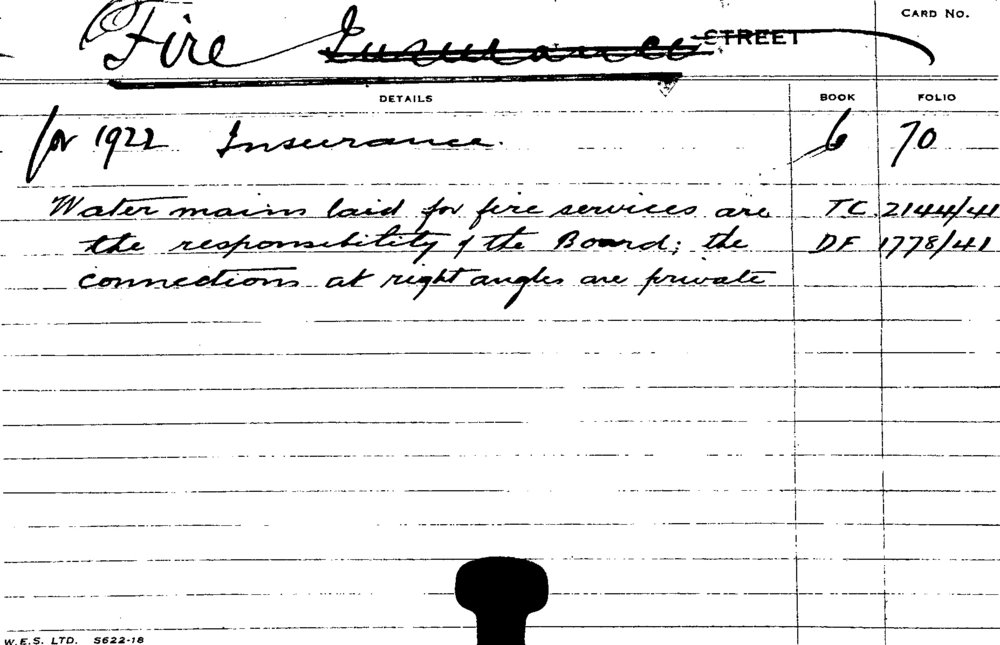 Fire Insurance STREET
CARD NO.
DETAILS BOOK FOLIO
for 1922 Insurance. 6 70
Water mains laid for fire services are TC 2144/41
the responsibility of the Board; the DF 1778/41
connections at right angles are private
W.E.S. LTD. S622-18